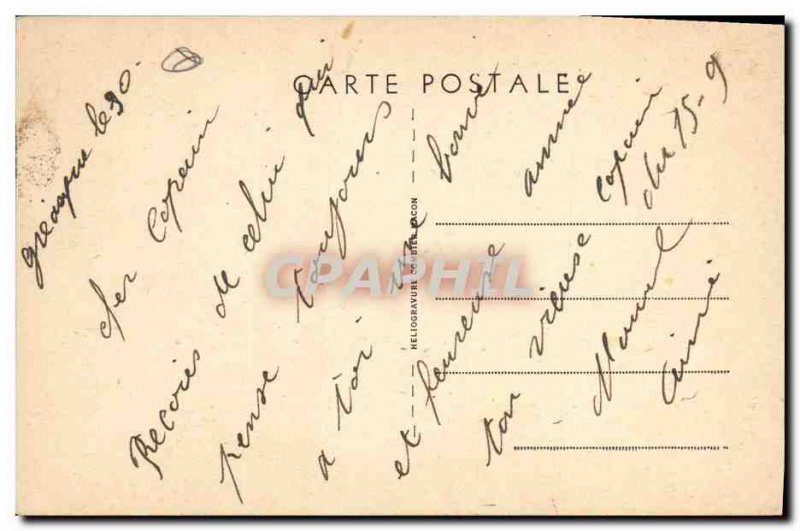 CARTE POSTALE
le 30
Cher Copain
Recois de celui qui
pense toujours
a toi une bonne
et heureuse année
ton vieux copain
du 15-9
Aimé
HELIOGRAVURE COMBIER MACON
CPAPHIL